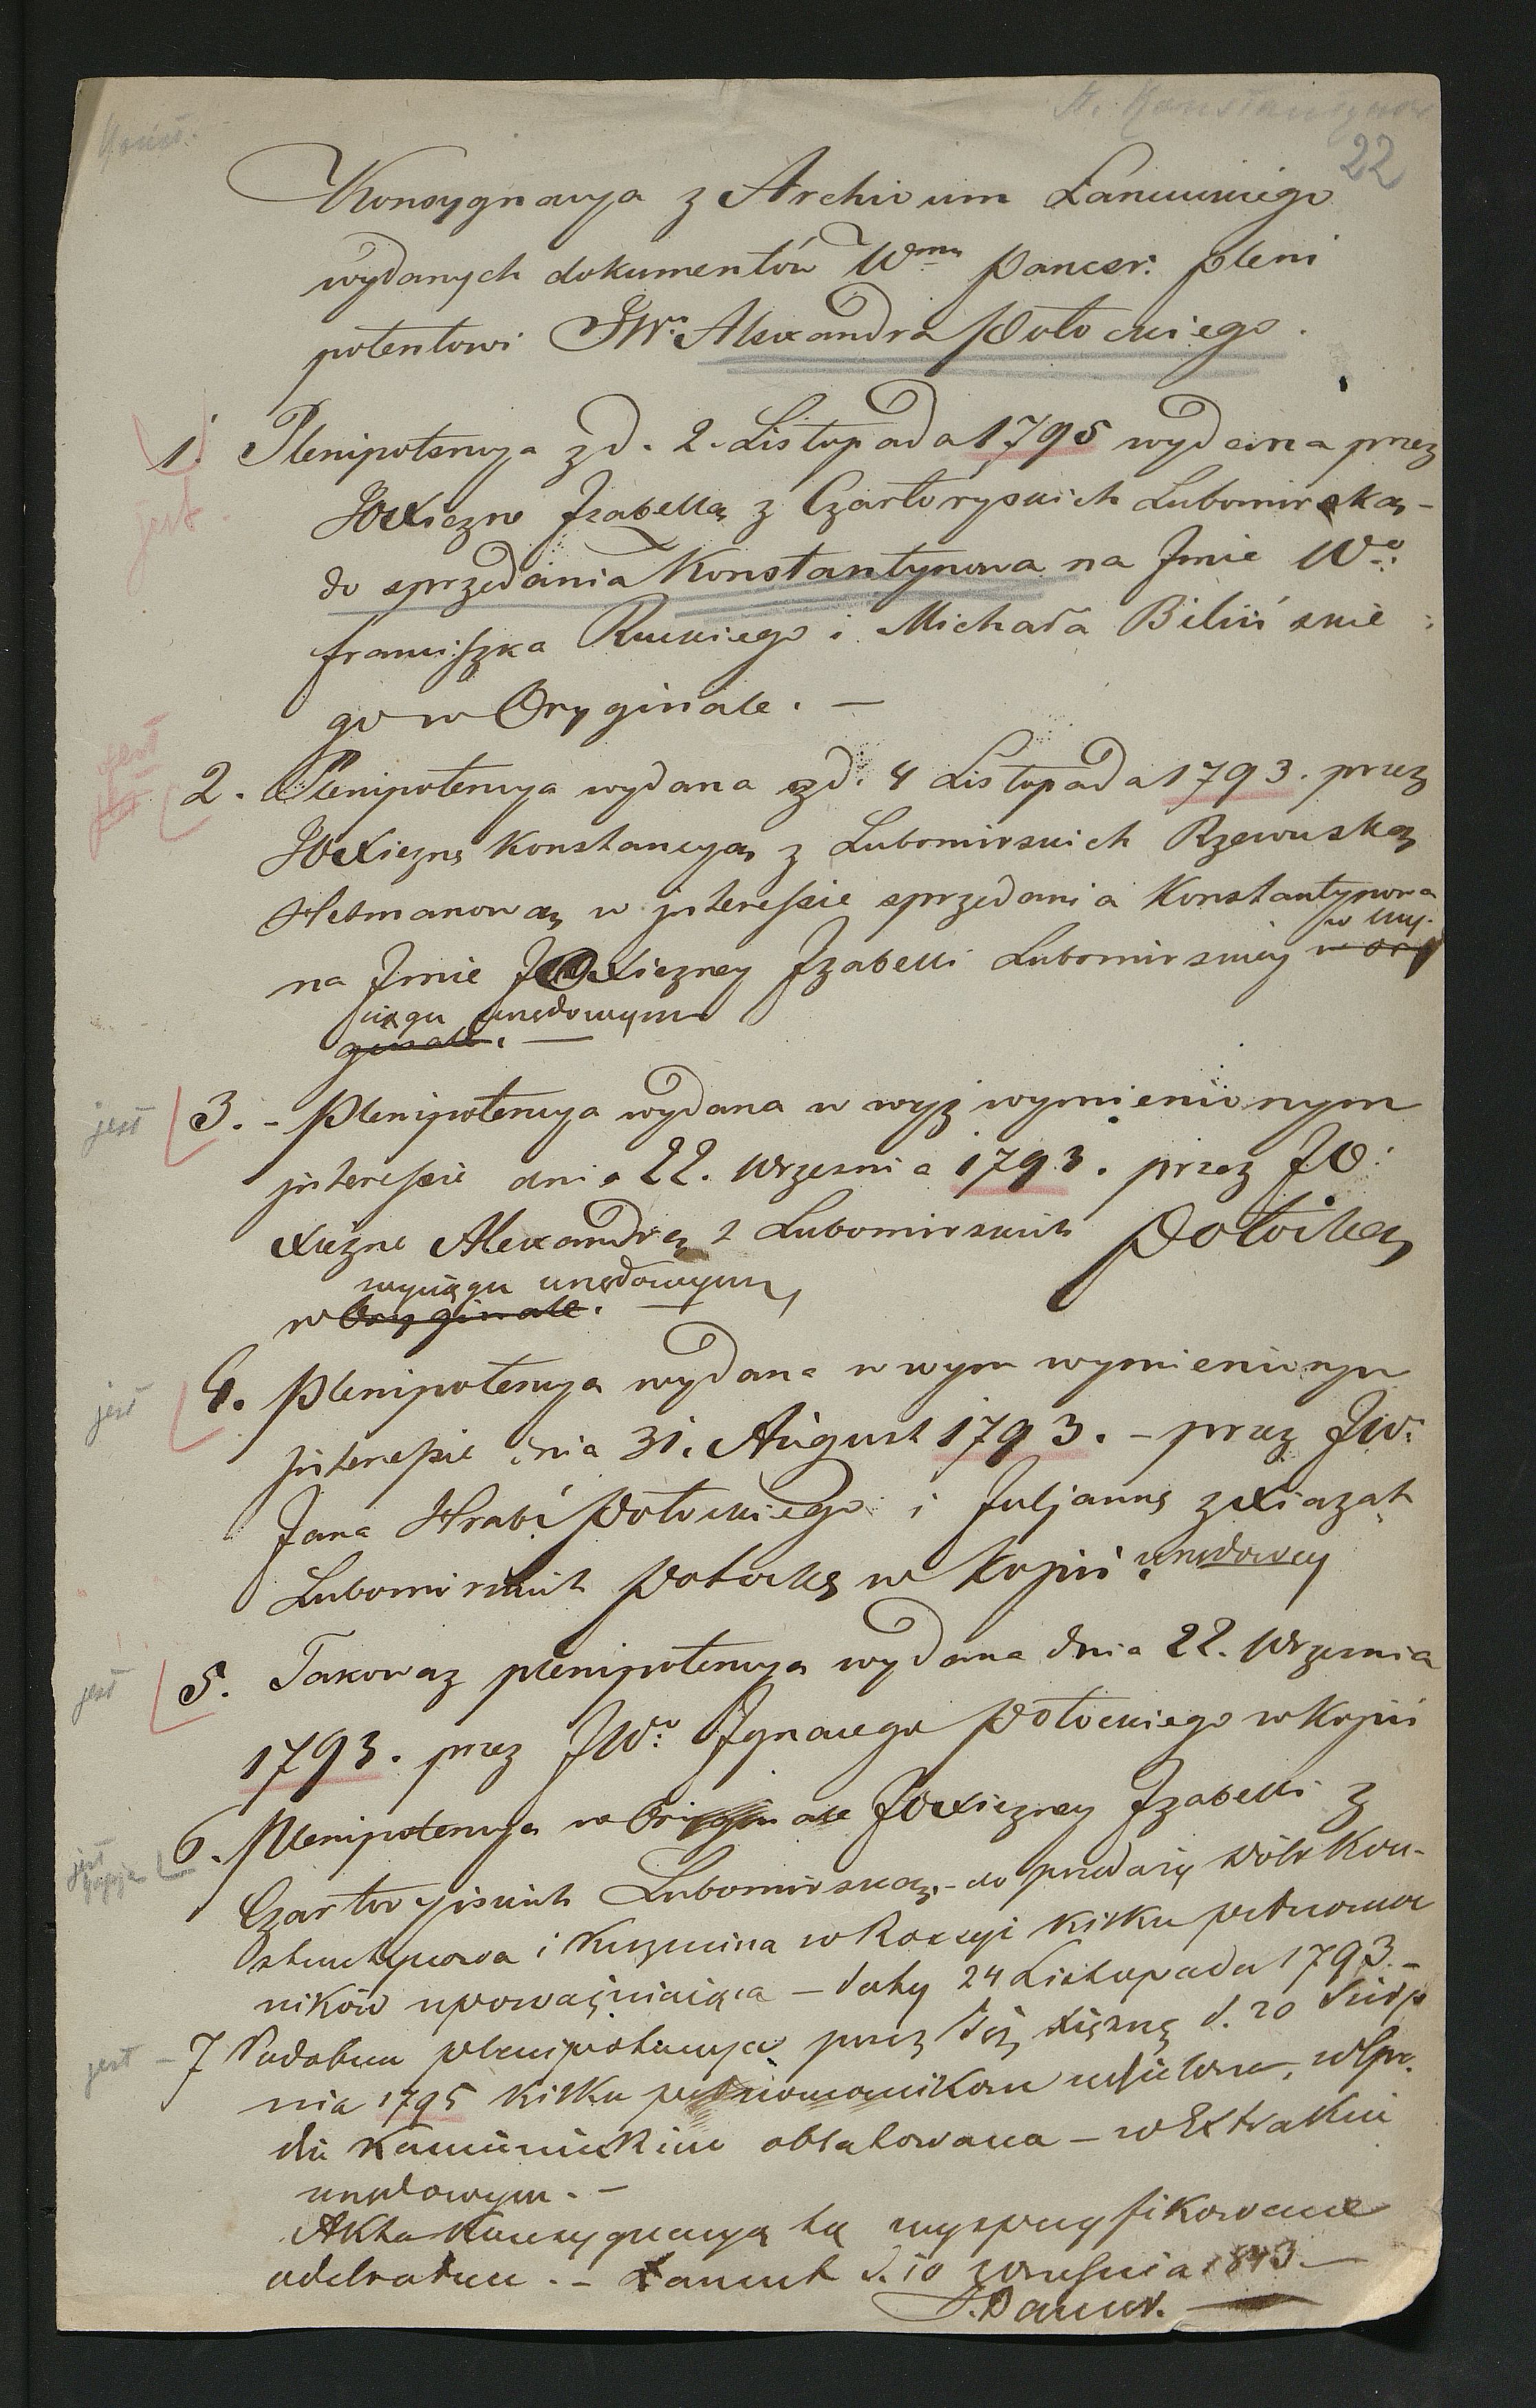 St. Konstantynów
Konst.
22
Konsygnacya z Archivum Łancuckiego
wydanych dokumentów Wmu Pancer. pleni
potentowi JW. Alexandra Potockiego.
1. Plenipotencya z d. 2. Listopada 1795 wydana przez
jest.
JOXiezne Izabellą z Czartoryskich Lubomirską -
do sprzedania Konstantynowa na Imie Wo:
Franciszka Ruckiego i Michała Biliński
go w Oryginale. -
jest
2. Plenipotencya wydana z d. 4 Listopada 1793. przez
JOXiezne Konstancyą z Lubomirskich Rzewuską
Hetmanową w interessie sprzedania Konstantynowa
na Imie JOXiezney Izabelli Lubomirskiey w ory
w wy-
ciągu urzędowym
ginale. -
jest 3. - Plenipotencya wydana w wyż wymienionym
interessie dnia 22. Wrzesnia 1793. przez JO:
Xiężne Alexandrą z Lubomirskich Potocką
wyciągu urzędowym,
w Oryginale. -
jest 4. Plenipotencya wydana w wym wymienionym
interessie dnia 31. August 1793. - przez JW:
Jana Hrabi Potockiego i Juljannę z Xiaząt
Lubomirskich Potocką w kopii urzędowey
jest 5. Takowaz plenipotencya wydana dnia 22. Wrzesnia
1793. przez JWo: Ignacego Potockiego w kopii
jest
kopja
6. Plenipotencya w Originale JOXiezney Izabelli z
Czartoryiskich Lubomirską - do przedaży dóbr Kon-
stantynowa i Kuzmina w Rossyi kilku pełnomoc
ników upoważniaiąca - daty 24 Listopada 1793. -
jest - 7 Podobna plenipotencya przez tęż Xiężnę d. 20 Sierp
nia 1795 kilku pełnomocnikom udzielona, w Gro.
dzie Kamienieckim oblatowana - w Extrakcie
urzędowym. -
Akta konsygnacyą tą wyspecyfikowane
odebrałem. - Łancut d. 10 Wrzesnia 1843. -
J. Pancer. -